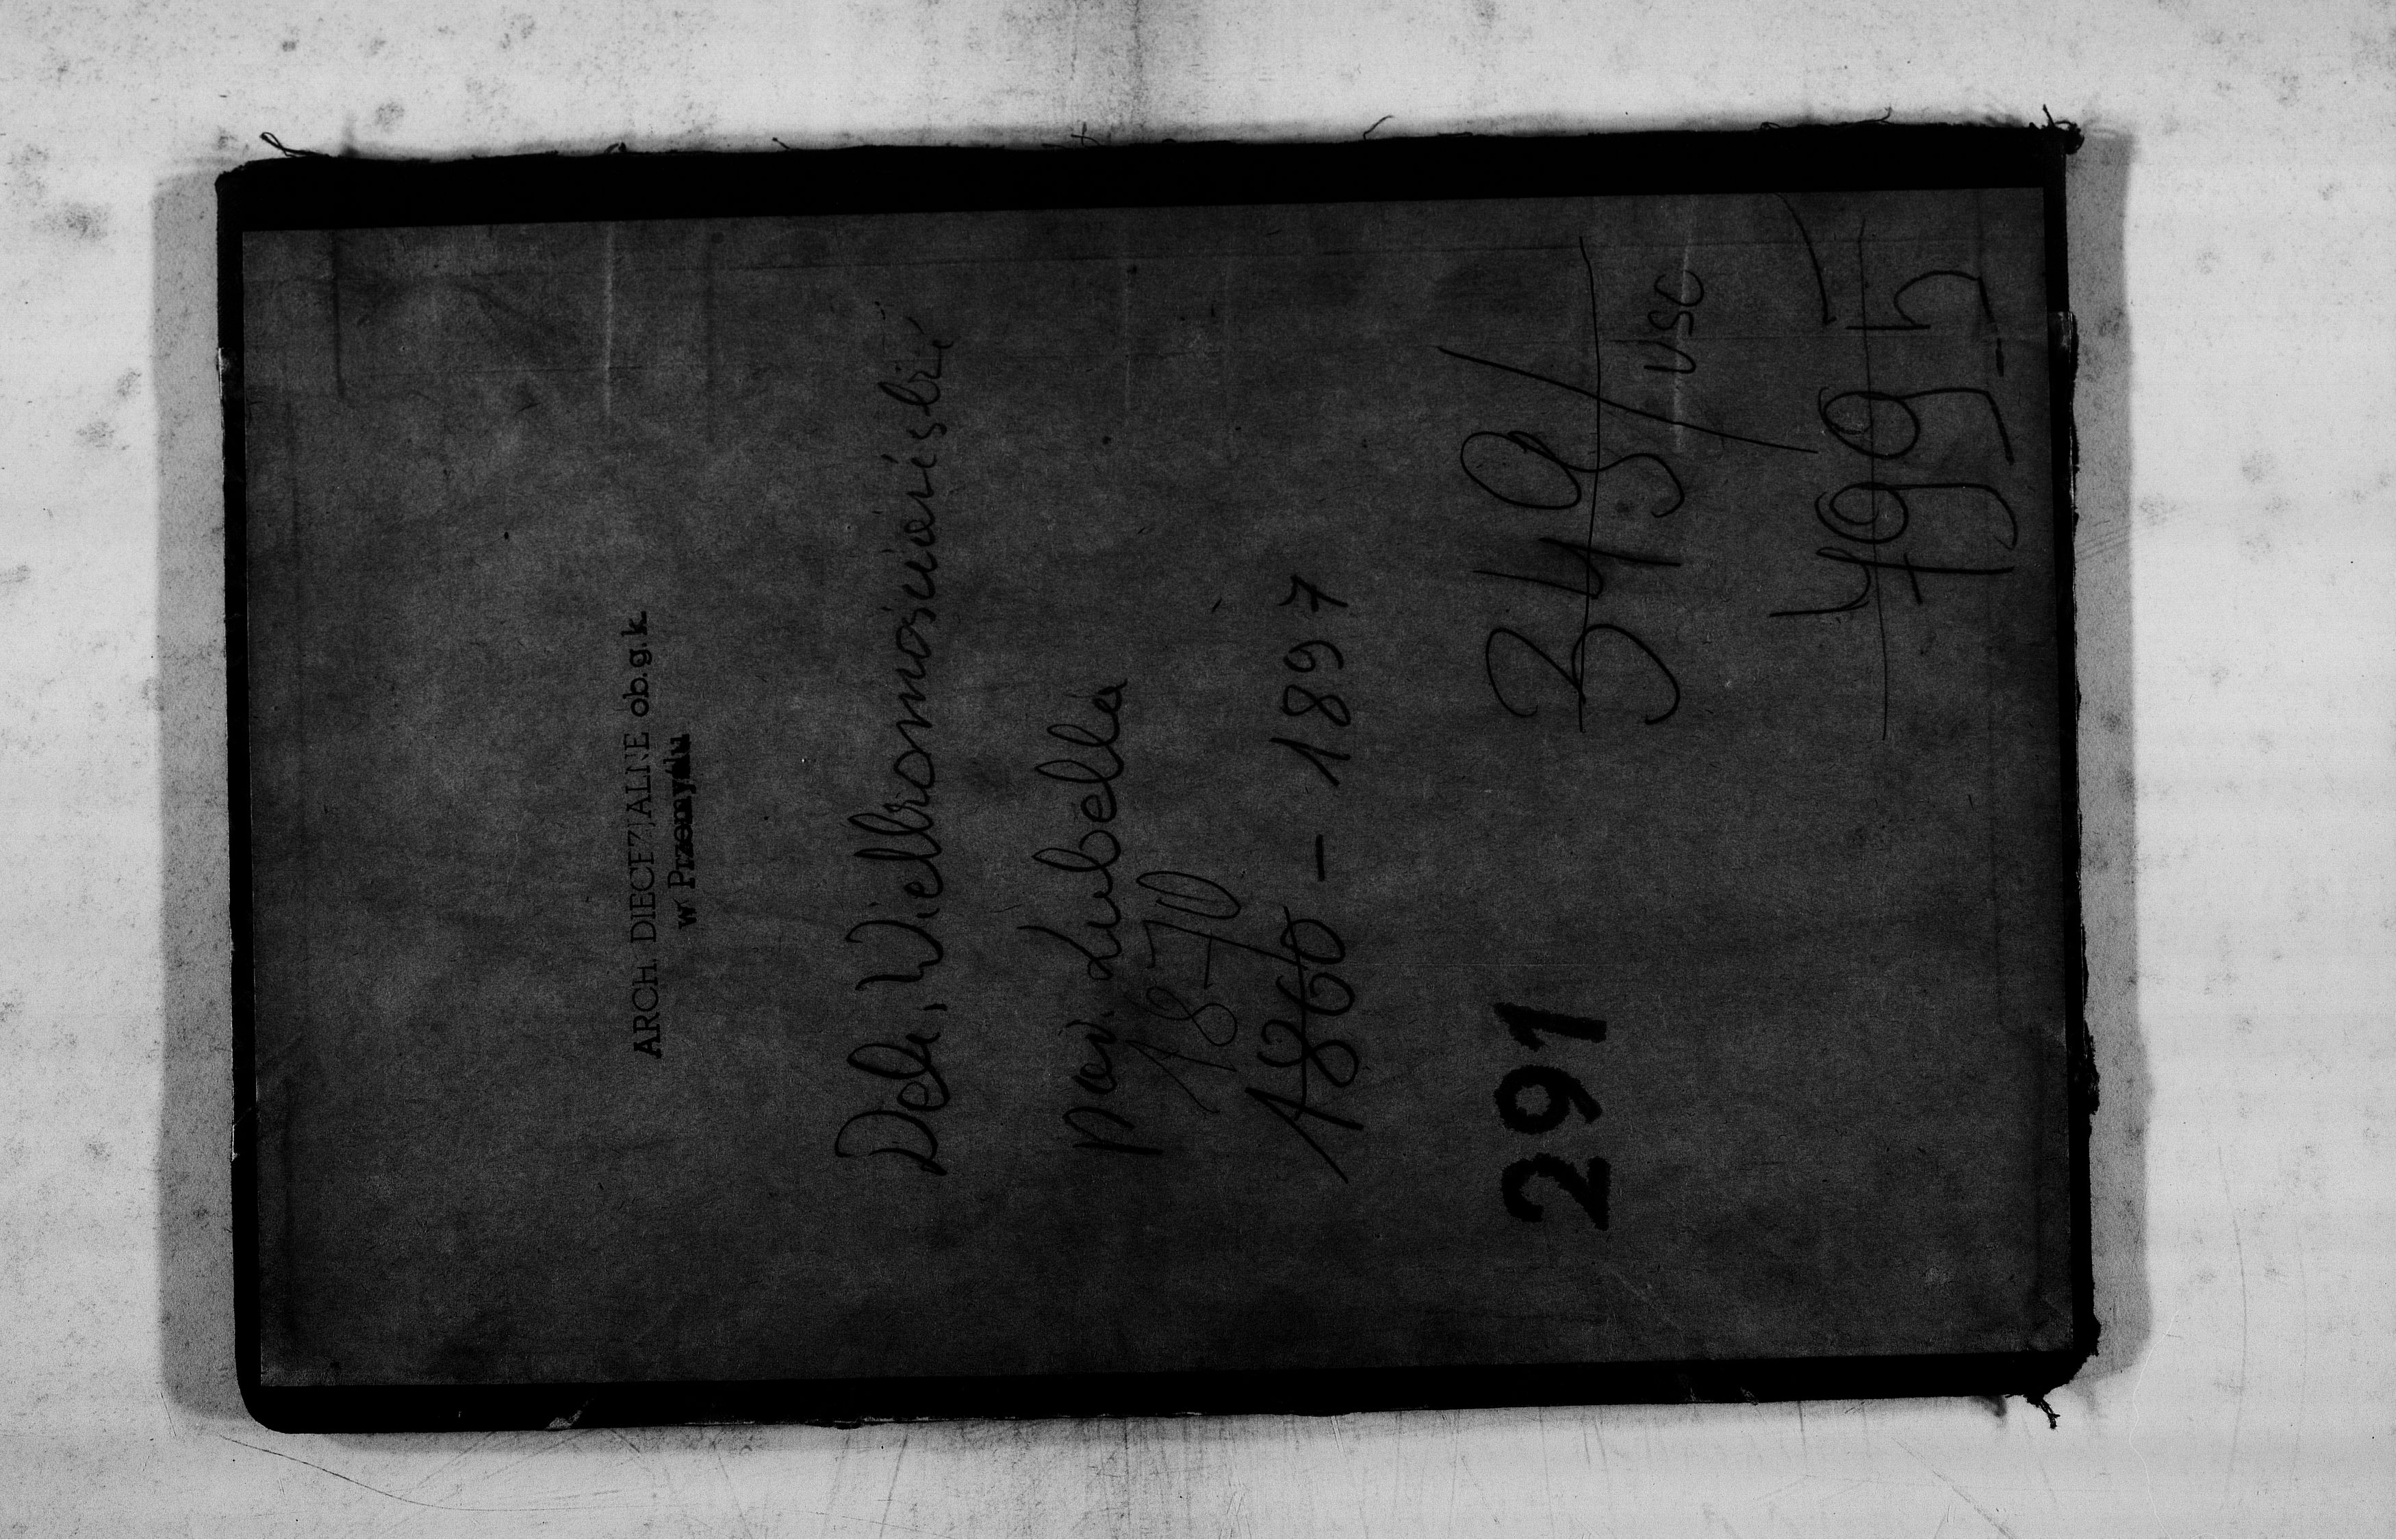 ARCH. DIECEZJALNE ob.g.k.
w Przemyślu
Dek. Wielkomościański
par. Lubella
1870
1860 – 1897
291
349/
USC